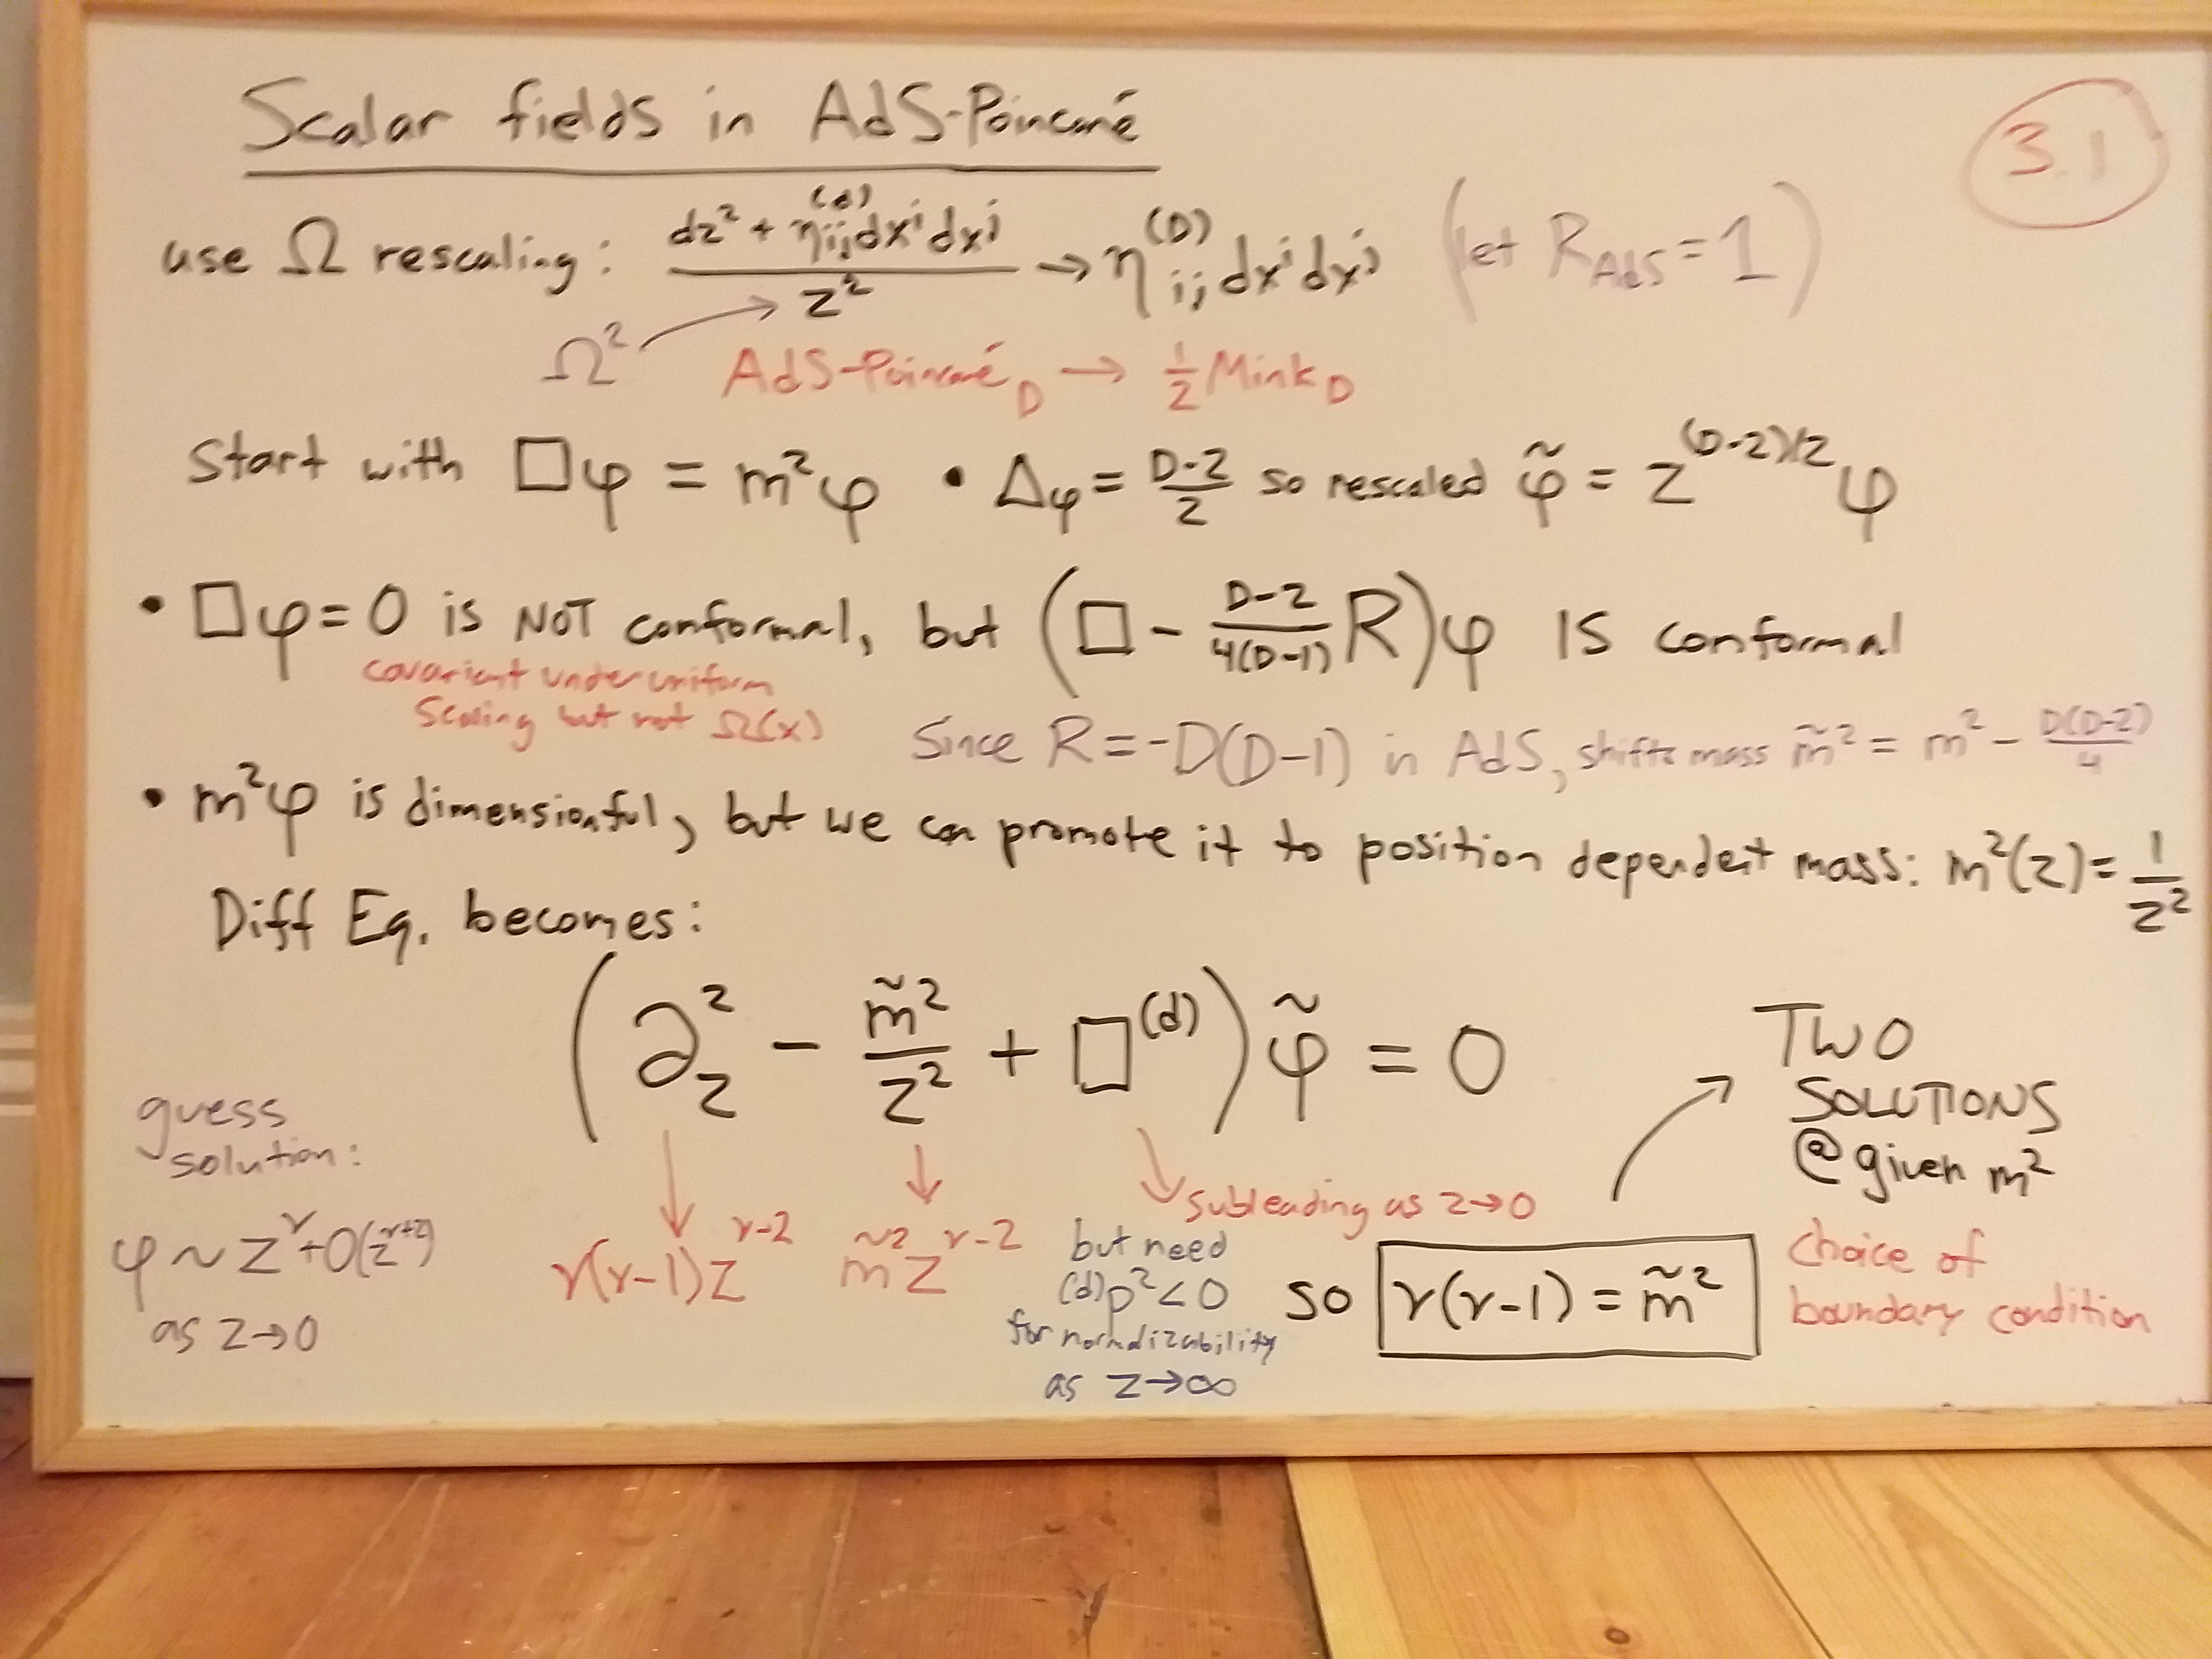 Scalar fields in AdS-Poincaré
3.1
use Ω rescaling: (dz² + η⁽ᵈ⁾ᵢⱼdxⁱdxʲ)/z² → η⁽ᴰ⁾ᵢⱼdxⁱdxʲ (let R_AdS = 1)
Ω²
AdS-Poincaré_D → ½ Mink_D
Start with □φ = m²φ • Δ_φ = (D-2)/2 so rescaled φ̃ = z^(D-2)/2 φ
• □φ = 0 is NOT conformal, but (□ - (D-2)/(4(D-1)) R)φ IS conformal
covariant under uniform
scaling but not Ω(x)
Since R = -D(D-1) in AdS, shifts mass m̃² = m² - D(D-2)/4
• m²φ is dimensionful, but we can promote it to position dependent mass: m²(z) = 1/z²
Diff Eq. becomes:
(∂_z² - m̃²/z² + □⁽ᵈ⁾) φ̃ = 0
guess
solution:
φ ~ z^γ + O(z^γ+2)
as z→0
γ(γ-1)z^γ-2
m̃²z^γ-2
subleading as z→0
but need
(d)p² < 0
for normalizability
as z→∞
so γ(γ-1) = m̃²
TWO
SOLUTIONS
@ given m²
choice of
boundary condition